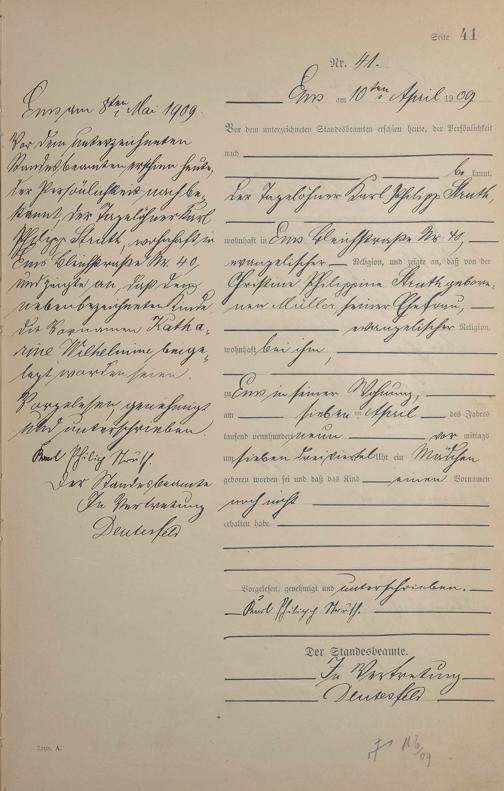 Seite 41
Nr. 41.
Ems am 10ten April 1909
Vor dem unterzeichneten Standesbeamten erschien heute, der Persönlichkeit
nach
be kannt,
der Tagelöhner Karl Philipp Struth,
wohnhaft in Ems Bleichstraße Nr. 40,
evangelischer Religion, und zeigte an, daß von der
Christine Philippine Struth gebore-
nen Müller, seiner Ehefrau,
evangelischer Religion
wohnhaft bei ihm,
zu Ems in seiner Wohnung,
am sieben ten April des Jahres
tausend neunhundert neun vor mittags
um sieben dreiviertel Uhr ein Mädchen
geboren worden sei und daß das Kind einen Vornamen
noch nicht
erhalten habe
Vorgelesen, genehmigt und unterschrieben.
Karl Philipp Struth.
Der Standesbeamte.
In Vertretung
Deutesfeld
Ems am 8ten Mai 1909.
Vor dem unterzeichneten
Standesbeamten erschien heute,
der Persönlichkeit nach be-
kannt, der Tagelöhner Karl
Philipp Struth, wohnhaft in
Ems Bleichstraße Nr. 40,
und zeigte an, daß dem
nebenbezeichneten Kinde
die Vornamen Katha-
rine Wilhelmine beige-
legt worden seien.
Vorgelesen genehmigt
und unterschrieben.
Karl Philipp Struth.
Der Standesbeamte
In Vertretung
Deutesfeld
Form. A.